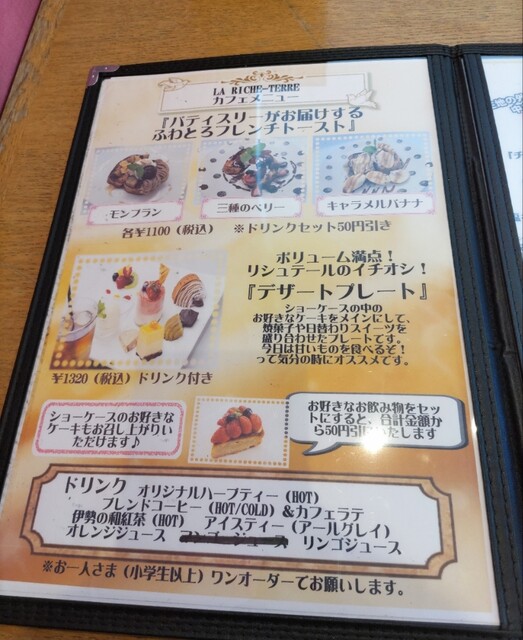 LA RICHE-TERRE
カフェメニュー
『パティスリーがお届けする
ふわとろフレンチトースト』
モンブラン
三種のベリー
キャラメルバナナ
各¥1100(税込) ※ドリンクセット50円引き
ボリューム満点!
リシュテールのイチオシ!
『デザートプレート』
ショーケースの中の
お好きなケーキをメインにして、
焼菓子や日替わりスイーツを
盛り合わせたプレートです。
今日は甘いものを食べるぞ!
って気分の時にオススメです。
¥1320(税込)ドリンク付き
ショーケースのお好きな
ケーキもお召し上がりい
ただけます♪
お好きなお飲み物をセッ
トにすると、合計金額か
ら50円引いたします
ドリンク オリジナルハーブティー(HOT)
ブレンドコーヒー(HOT/COLD)&カフェラテ
伊勢の和紅茶(HOT) アイスティー(アールグレイ)
オレンジジュース リンゴジュース
※お一人さま(小学生以上)ワンオーダーでお願いします。